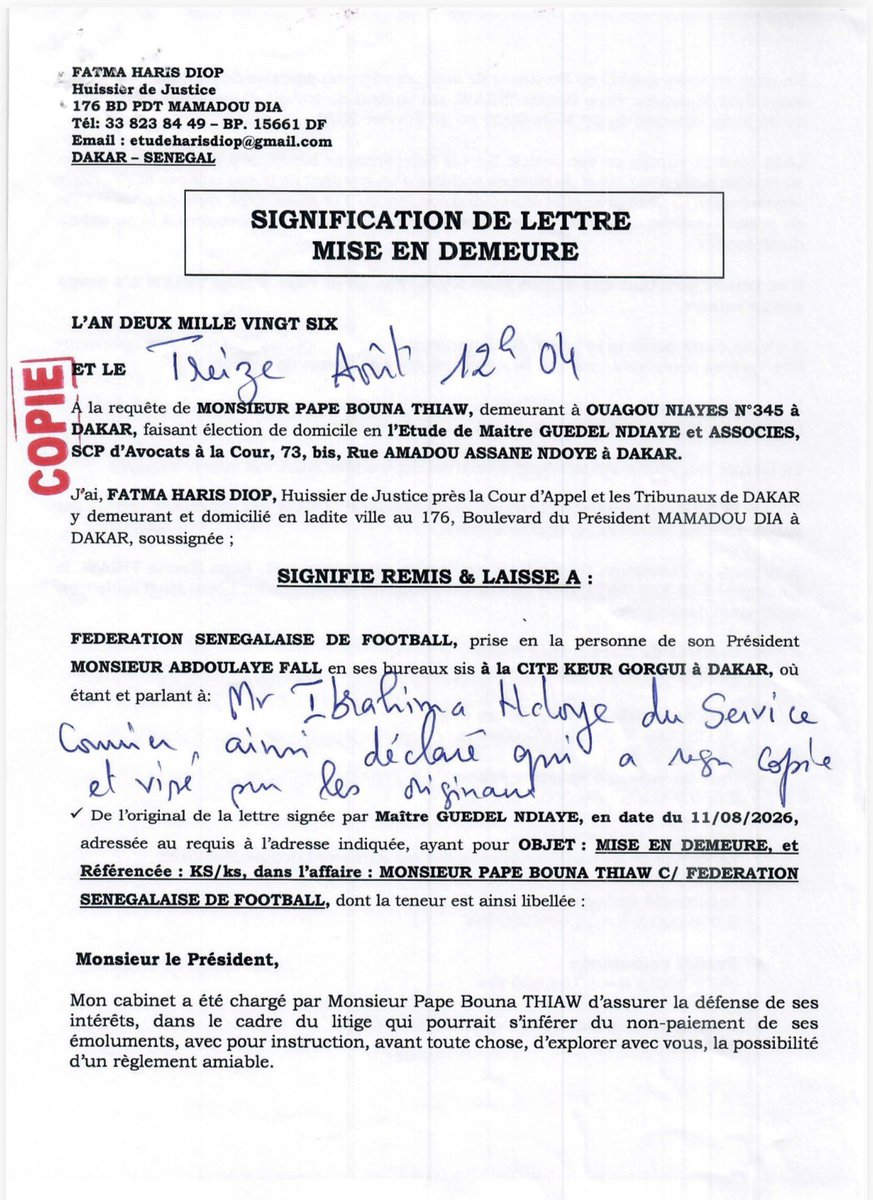 FATMA HARIS DIOP
Huissier de Justice
176 BD PDT MAMADOU DIA
Tél: 33 823 84 49 – BP. 15661 DF
Email : etudeharisdiop@gmail.com
DAKAR – SENEGAL
SIGNIFICATION DE LETTRE
MISE EN DEMEURE
L'AN DEUX MILLE VINGT SIX
ET LE Treize Août 12h 04
COPIE
À la requête de MONSIEUR PAPE BOUNA THIAW, demeurant à OUAGOU NIAYES N°345 à
DAKAR, faisant élection de domicile en l'Etude de Maitre GUEDEL NDIAYE et ASSOCIES,
SCP d'Avocats à la Cour, 73, bis, Rue AMADOU ASSANE NDOYE à DAKAR.
J'ai, FATMA HARIS DIOP, Huissier de Justice près la Cour d'Appel et les Tribunaux de DAKAR
y demeurant et domicilié en ladite ville au 176, Boulevard du Président MAMADOU DIA à
DAKAR, soussignée ;
SIGNIFIE REMIS & LAISSE A :
FEDERATION SENEGALAISE DE FOOTBALL, prise en la personne de son Président
MONSIEUR ABDOULAYE FALL en ses bureaux sis à la CITE KEUR GORGUI à DAKAR, où
étant et parlant à: Mr Ibrahima Ndoye du Service
Courrier, ainsi déclaré qui a reçu copie
et visé les originaux
✓ De l'original de la lettre signée par Maître GUEDEL NDIAYE, en date du 11/08/2026,
adressée au requis à l'adresse indiquée, ayant pour OBJET : MISE EN DEMEURE, et
Référencée : KS/ks, dans l'affaire : MONSIEUR PAPE BOUNA THIAW C/ FEDERATION
SENEGALAISE DE FOOTBALL, dont la teneur est ainsi libellée :
Monsieur le Président,
Mon cabinet a été chargé par Monsieur Pape Bouna THIAW d'assurer la défense de ses
intérêts, dans le cadre du litige qui pourrait s'inférer du non-paiement de ses
émoluments, avec pour instruction, avant toute chose, d'explorer avec vous, la possibilité
d'un règlement amiable.